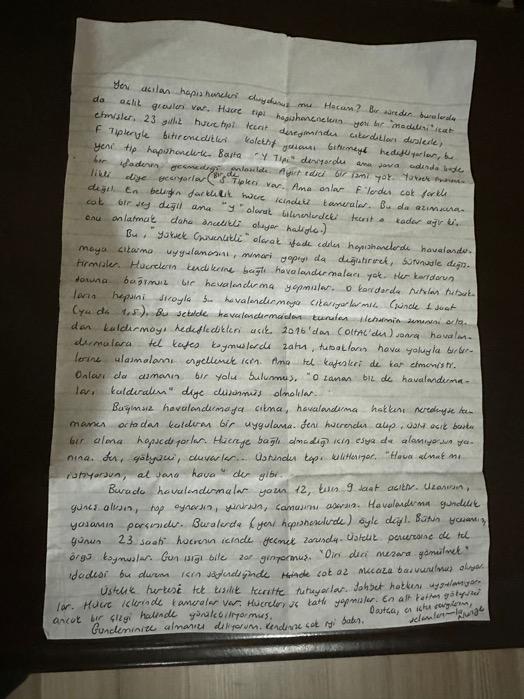 Yeni açılan hapishaneleri duydunuz mu Hocam? Bir süreden buralarda
da açlık grevleri var. Hücre tipi hapishanelerin yeni bir "modelini" icat
etmişler. 23 yıllık hücre tipi tecrit deneyiminden çıkardıkları derslerle,
F Tipleriyle bitiremedikleri kolektif yaşamı bitirmeyi hedefliyorlar, bu
yeni tip hapishanelerle. Başta "Y Tipi" deniyordu ama sonra adında böyle
bir ifadenin geçmediği anlaşıldı. Ayırt edici bir ismi yok. Yüksek Güvenlikli
diye geçiyorlar (Bir de S Tipleri var. Ama onlar F'lerden çok farklı
değil. En belirgin farklılık hücre içindeki kameralar. Bu da azımsanacak
bir şey değil ama "Y" olarak bilinenlerdeki tecrit o kadar ağır ki,
onu anlatmak daha öncelikli oluyor haliyle.)
Bu, "Yüksek Güvenlikli" olarak ifade edilen hapishanelerde havalandır-
maya çıkarma uygulamasını, mimari yapıyı da değiştirerek, bütünüyle değiş-
tirmişler. Hücrelerin kendilerine bağlı havalandırmaları yok. Her koridorun
sonuna bağımsız bir havalandırma yapmışlar. O koridorda tutulan tutsak-
ların hepsini sırayla bu havalandırmaya çıkarıyorlarmış. Günde 1 saat
(ya da 1,5). Bu şekilde havalandırmadan kurulan iletişimin zeminini orta-
dan kaldırmayı hedefledikleri açık. 2016'dan (OHAL'den) sonra havalan-
dırmalara tel kafes koymuşlardı zaten, tutsakların hava yoluyla birbir-
lerine ulaşmalarını engellemek için. Ama tel kafesleri de kar etmemişti.
Onları da aşmanın bir yolu bulunmuş. "O zaman biz de havalandırma-
ları kaldıralım" diye düşünmüş olmalılar.
Bağımsız havalandırmaya çıkma, havalandırma hakkını neredeyse ta-
mamen ortadan kaldıran bir uygulama. Seni hücrenden alıp, üstü açık başka
bir alana hapsediyorlar. Hücreye bağlı olmadığı için eşya da alamıyorsun ya-
nına. Sen, gökyüzü, duvarlar... Üstünden kapı kilitleniyor. "Hava almak mı
istiyorsun, al sana hava" der gibi.
Burada havalandırmalar yazın 12, kışın 9 saat açıktır. Uzanırsın,
güneş alırsın, top oynarsın, yürürsün, çamaşırını asarsın. Havalandırma gündelik
yaşamın parçasıdır. Buralarda (yeni hapishanelerde) öyle değil. Bütün yaşamın,
günün 23 saati hücrenin içinde geçmek zorunda. Üstelik pencerene de tel
örgü koymuşlar. Gün ışığı bile zor giriyormuş. "Diri diri mezara gömülmek"
ifadesi bu durum için söylendiğinde çok az mecaza başvurulmuş oluyor.
Üstelik herkesi tek kişilik tecritte tutuyorlar. Sohbet hakkını uygulamıyor-
lar. Hücre içlerinde kameralar var. Hücreleri üç katlı yapmışlar. En alt kattan gökyüzü
ancak bir çizgi halinde görülebiliyormuş.
Gündeminize almanızı diliyorum. Kendinize çok iyi bakın.
Dostça, en içten sevgilerim,
selamlarımla